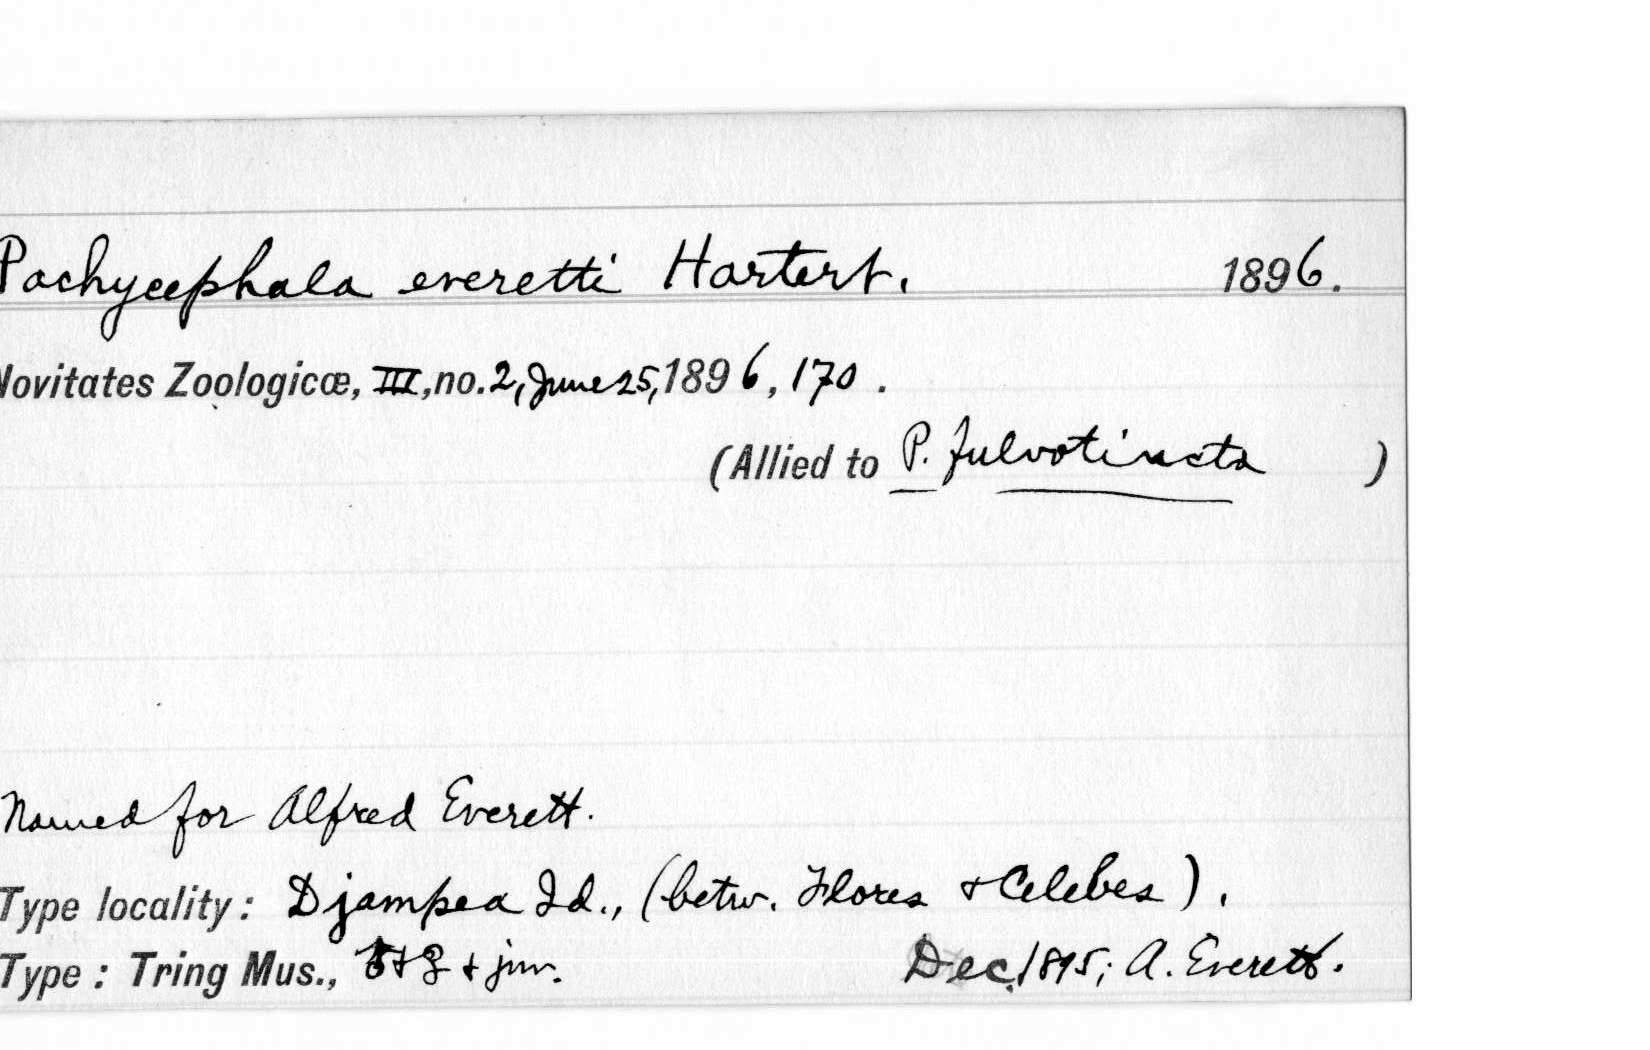 Pachycephala everetti Hartert. 1896.
Novitates Zoologicæ, III, no. 2, June 25, 1896, 170.
(Allied to P. fulvotincta )
Named for Alfred Everett.
Type locality: Djampea Id., (betw. Flores + Celebes).
Type: Tring Mus., + juv. Dec. 1895; A. Everett.